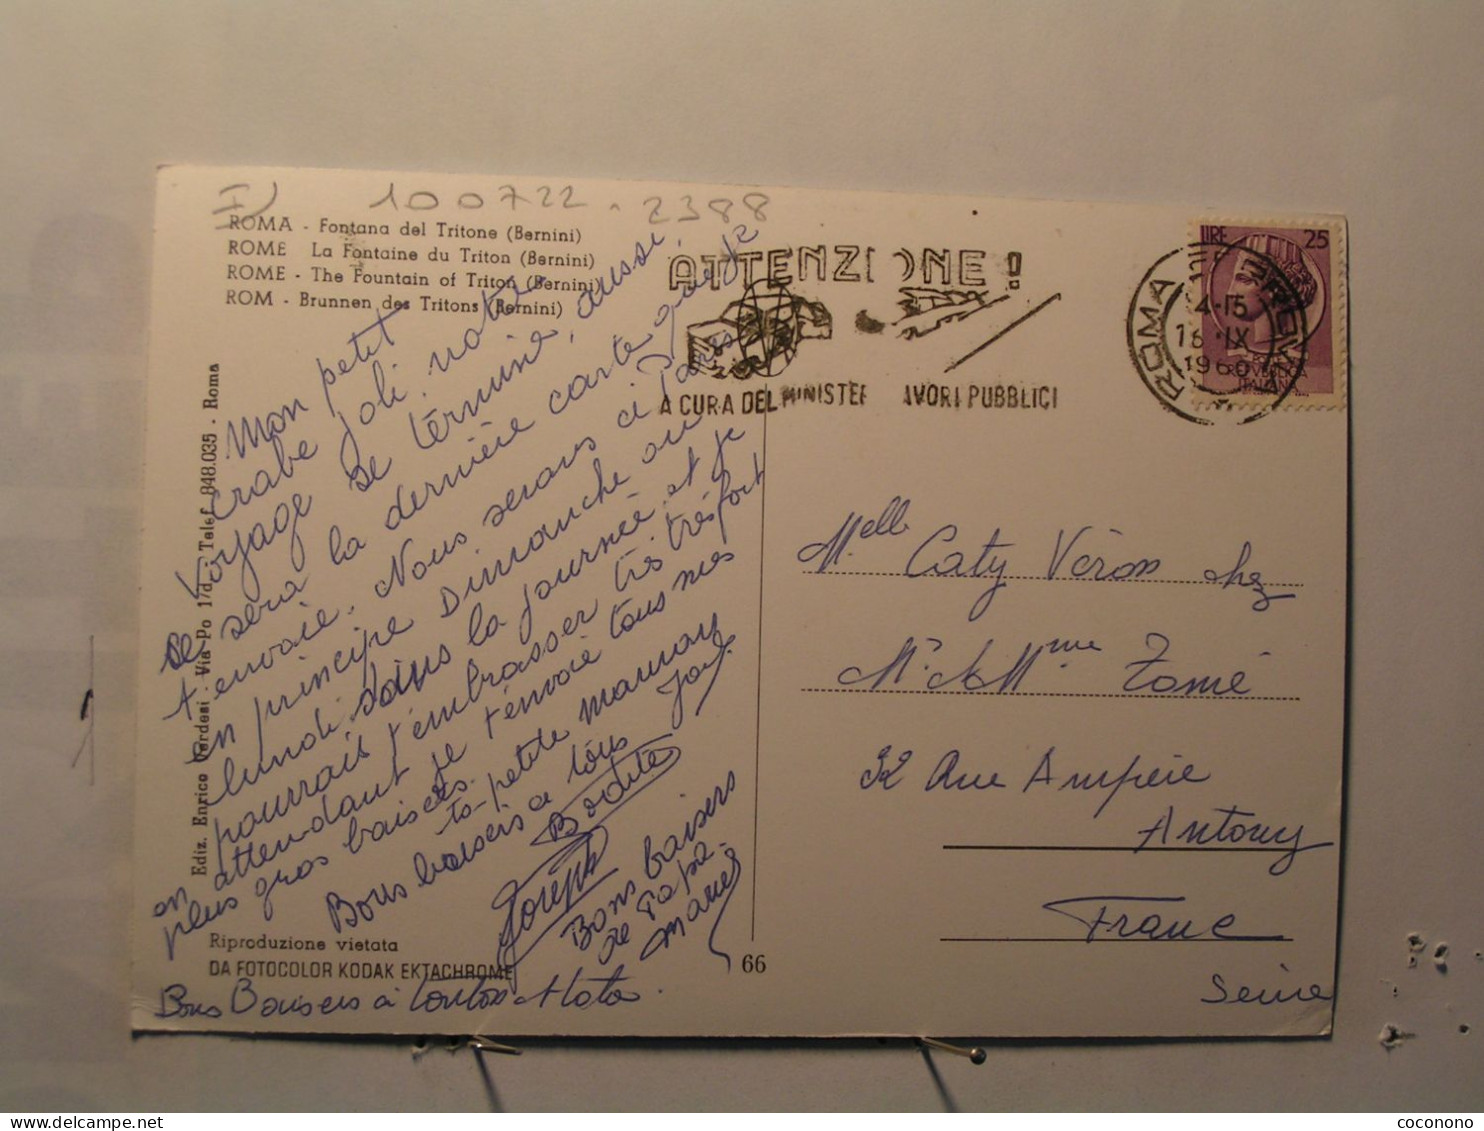 I) 100722 - 2388
ROMA - Fontana del Tritone (Bernini)
ROME La Fontaine du Triton (Bernini)
ROME - The Fountain of Triton (Bernini)
ROM - Brunnen des Tritons (Bernini)
ATTENZIONE !
A CURA DEL MINISTE AVORI PUBBLICI
ROMA FERROVIA
4-15
18 IX
1960
LIRE 25
POSTE
REPVBBLICA
ITALIANA
Mon petit
crabe joli, notre
voyage se termine, aussi
se sera la dernière carte que je
t'envoie. Nous serons ci Paris
en principe Dimanche ou
lundi dans la journée et je
pourrais t'embrasser très très fort
en attendant je t'envoie tous mes
plus gros baisers.
ta petite maman
Bons baisers a tous
Josy
Bodite
Joseph
Bons baisers
de Papa
Marcel
Bons Baisers à tonton Toto
Ediz. Enrico Verdesi - Via Po 17d - Telef. 848.035 - Roma
Riproduzione vietata
DA FOTOCOLOR KODAK EKTACHROME
66
Melle Caty Véron chez
Mr & Mme Tomé
32 Rue Ampère
Antony
France
Seine
coconono